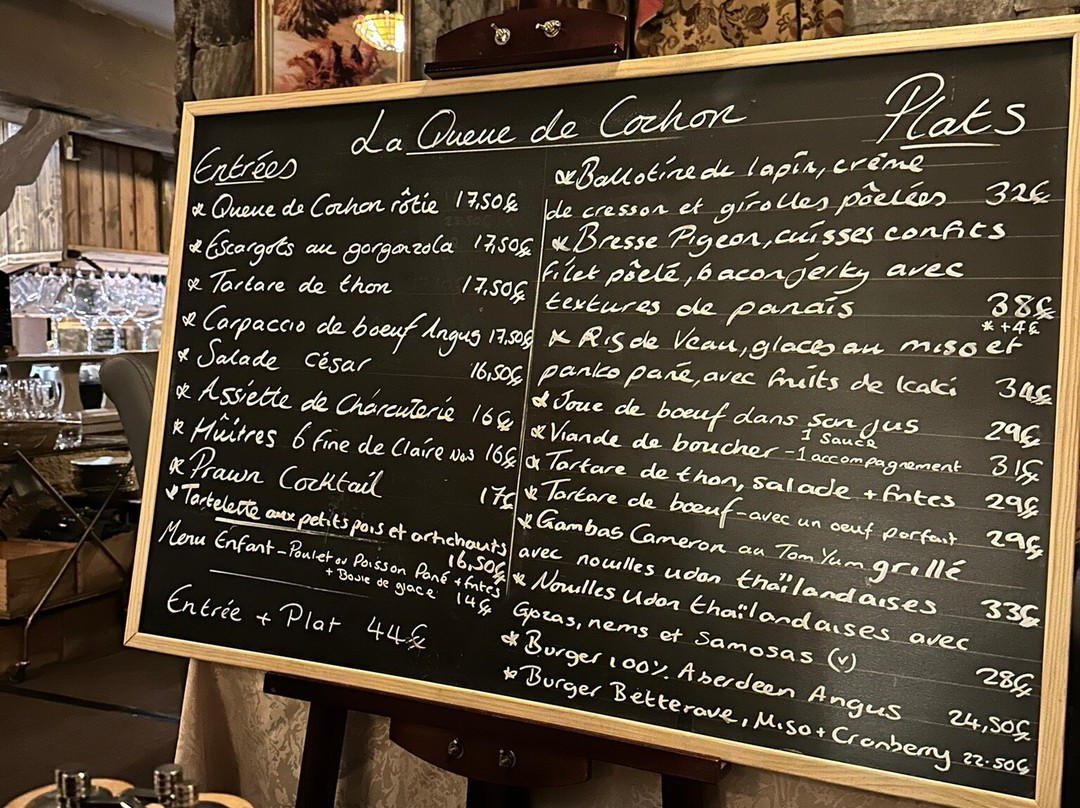 La Queue de Cochon
Entrées
* Queue de Cochon rôtie 17,50€
* Escargots au gorgonzola 17,50€
* Tartare de thon 17,50€
* Carpaccio de boeuf Angus 17,50€
* Salade César 16,50€
* Assiette de Charcuterie 16€
* Hûitres 6 fine de Claire No3 16€
* Prawn Cocktail 17€
* Tartelette aux petits pois et artichauts
16,50€
Menu Enfant - Poulet ou Poisson Pané + frites
+ Boule de glace 14€
Entrée + Plat 44€
Plats
* Ballotine de lapin, crème
de cresson et girolles pôelées 32€
* Bresse Pigeon, cuisses confits
filet pôelé, bacon jerky avec
textures de panais 38€
* +4€
* Ris de Veau, glaces au miso et
panko pané, avec fruits de kaki 34€
* Joue de boeuf dans son jus 29€
* Viande de boucher - 1 sauce
1 accompagnement 31€
* Tartare de thon, salade + frites 29€
* Tartare de boeuf - avec un oeuf parfait 29€
* Gambas Cameron au Tom Yum grillé
avec nouilles udon thaïlandaises 33€
* Nouilles Udon thaïlandaises avec
Gyozas, nems et Samosas (v) 28€
* Burger 100% Aberdeen Angus 24,50€
* Burger Betterave, Miso + Cranberry 22.50€